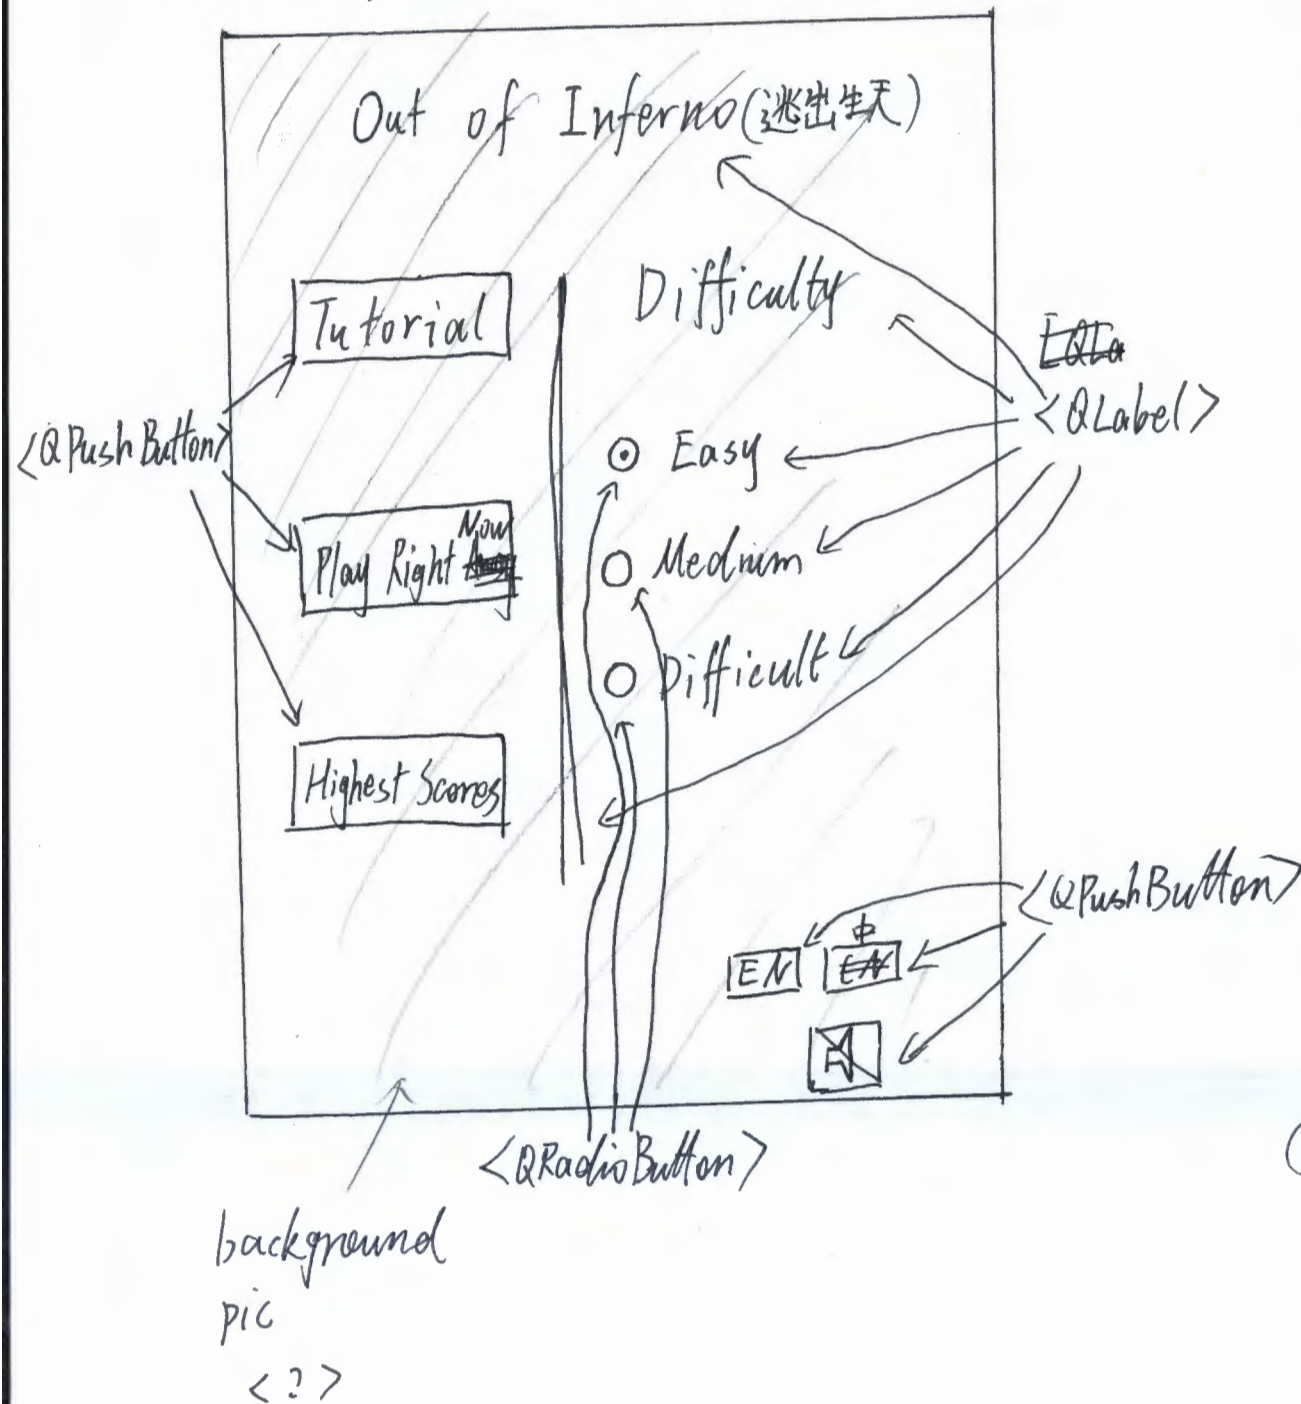 Out of Inferno(逃出生天)
Difficulty
Tutorial
<QLabel>
<QPushButton>
Easy
Now
Play Right
Medium
Difficult
Highest Scores
<QPushButton>
中
EN
EN
<QRadioButton>
background
pic
<?>